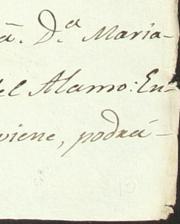 á. D.ª Maria-
del Alamo: En-
viene, podrá-